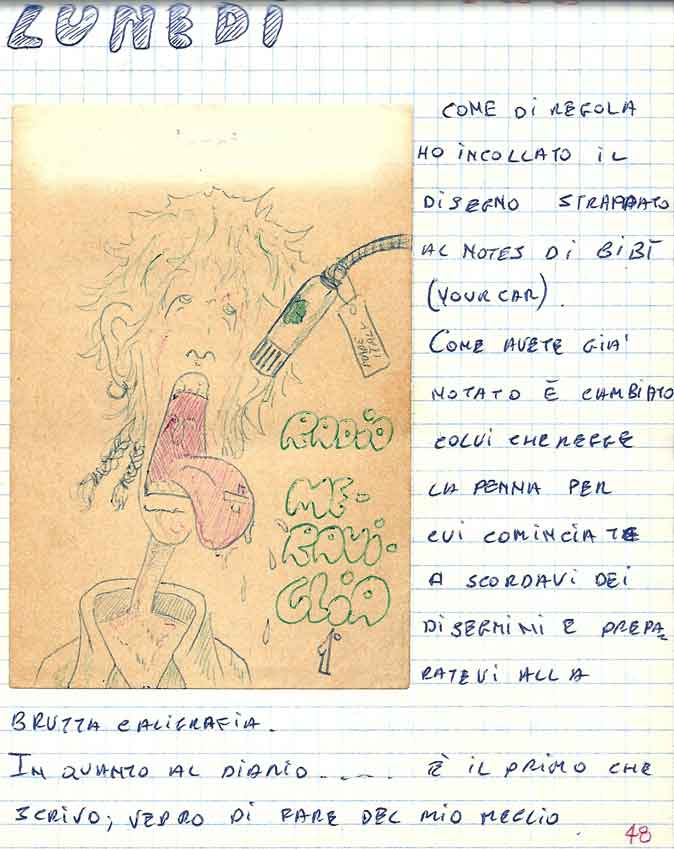 LUNEDI
COME DI REGOLA
HO INCOLLATO IL
DISEGNO STRAPPATO
AL NOTES DI BIBÌ
(YOUR CAR).
COME AVETE GIA'
NOTATO È CAMBIATO
COLUI CHE REGGE
LA PENNA PER
CUI COMINCIATE
A SCORDAVI DEI
DISEGNINI E PREPA-
RATEVI ALLA
BRUTTA CALIGRAFIA.
IN QUANTO AL DIARIO..... È IL PRIMO CHE
SCRIVO; VEDRO DI FARE DEL MIO MEGLIO
MADE
ITALY
RADIO
ME-
RAVI-
GLIA
48